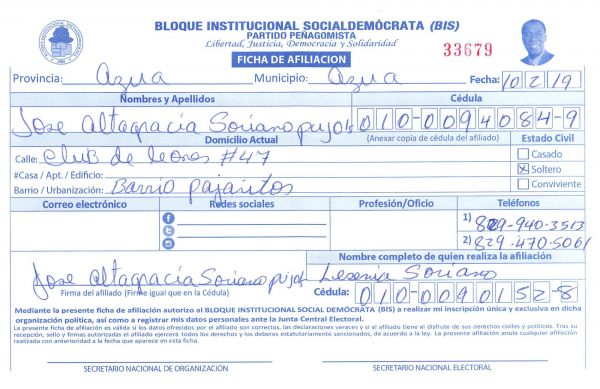 BLOQUE INSTITUCIONAL SOCIALDEMÓCRATA (BIS)
PARTIDO PEÑAGOMISTA
Libertad, Justicia, Democracia y Solidaridad
33679
FICHA DE AFILIACION
Provincia: Azua Municipio: Azua Fecha: 10/2/19
Nombres y Apellidos Cédula
Jose Altagracia Soriano pujols 010-0094084-9
Domicilio Actual (Anexar copia de cédula del afiliado) Estado Civil
Calle: Club de leones #47 Casado
#Casa / Apt. / Edificio: Soltero
Barrio / Urbanización: Barrio Pajaritos Conviviente
Correo electrónico Redes sociales Profesión/Oficio Teléfonos
1) 829-940-3513
2) 829-470-5061
Nombre completo de quien realiza la afiliación
Jose altagracia Soriano pujols Soriano
Firma del afiliado (Firme igual que en la Cédula) Cédula: 010-0090152-8
Mediante la presente ficha de afiliación autorizo al BLOQUE INSTITUCIONAL SOCIAL DEMÓCRATA (BIS) a realizar mi inscripción única y exclusiva en dicha
organización política, así como a registrar mis datos personales ante la Junta Central Electoral.
La presente ficha de afiliación es válida si los datos ofrecidos por el afiliado son correctos, las declaraciones veraces y si el afiliado tiene el disfrute de sus derechos civiles y políticos. Tras su
recepción, sello y firmas autorizadas el afiliado ejercerá todos los derechos y los deberes estatutariamente sancionados, de acuerdo a la ley. La presente afiliación anula cualquier afiliación
realizada con anterioridad a la fecha que aparece en esta ficha.
SECRETARIO NACIONAL DE ORGANIZACIÓN SECRETARIO NACIONAL ELECTORAL